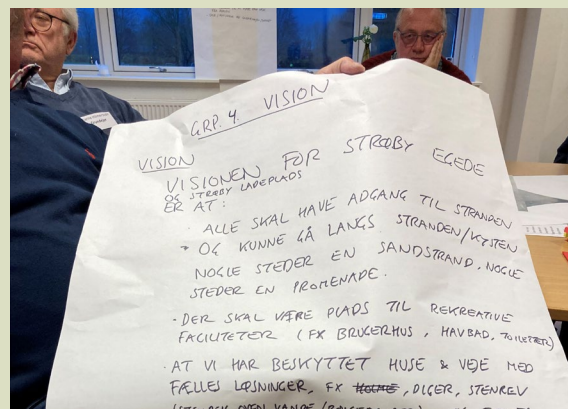 GRP. 4. VISION
VISION
VISIONEN FOR STRØBY EGEDE
OG STRØBY LADEPLADS
ER AT:
· ALLE SKAL HAVE ADGANG TIL STRANDEN
· OG KUNNE GÅ LANGS STRANDEN/KYSTEN
NOGLE STEDER EN SANDSTRAND, NOGLE
STEDER EN PROMENADE.
· DER SKAL VÆRE PLADS TIL REKREATIVE
FACILITETER (FX BRUGERHUS, HAVBAD, TOILETTER)
· AT VI HAR BESKYTTET HUSE & VEJE MED
FÆLLES LØSNINGER, FX HOLME, DIGER, STENREV